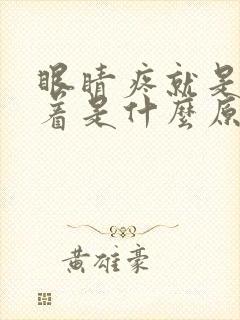 眼睛疼就是
着是什麼原
黄雄豪